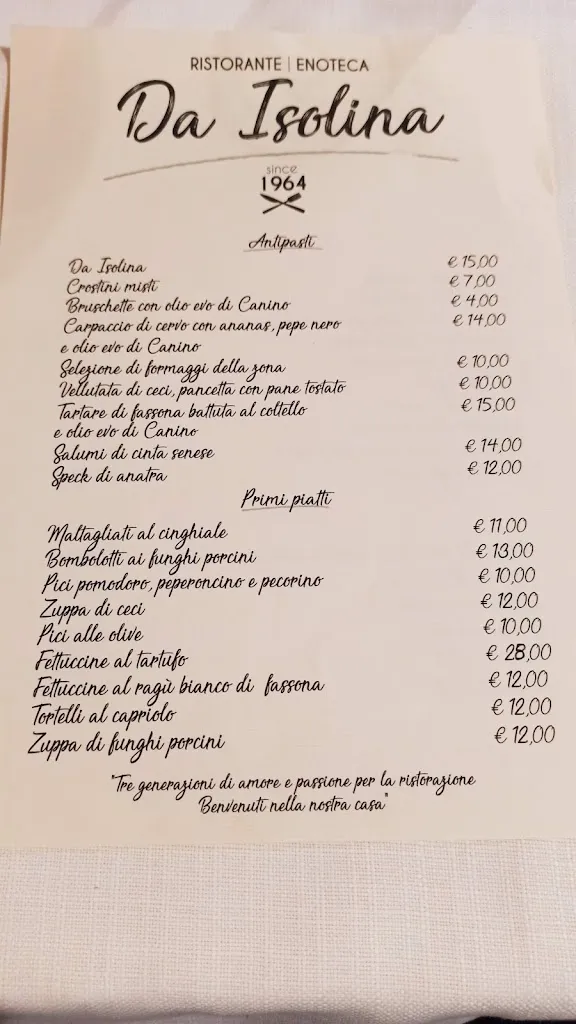 RISTORANTE | ENOTECA
Da Isolina
since
1964
Antipasti
Da Isolina € 15,00
Crostini misti € 7,00
Bruschette con olio evo di Canino € 4,00
Carpaccio di cervo con ananas, pepe nero € 14,00
e olio evo di Canino
Selezione di formaggi della zona € 10,00
Vellutata di ceci, pancetta con pane tostato € 10,00
Tartare di fassona battuta al coltello € 15,00
e olio evo di Canino
Salumi di cinta senese € 14,00
Speck di anatra € 12,00
Primi piatti
Maltagliati al cinghiale € 11,00
Bombolotti ai funghi porcini € 13,00
Pici pomodoro, peperoncino e pecorino € 10,00
Zuppa di ceci € 12,00
Pici alle olive € 10,00
Fettuccine al tartufo € 28,00
Fettuccine al ragù bianco di fassona € 12,00
Tortelli al capriolo € 12,00
Zuppa di funghi porcini € 12,00
"Tre generazioni di amore e passione per la ristorazione
Benvenuti nella nostra casa"